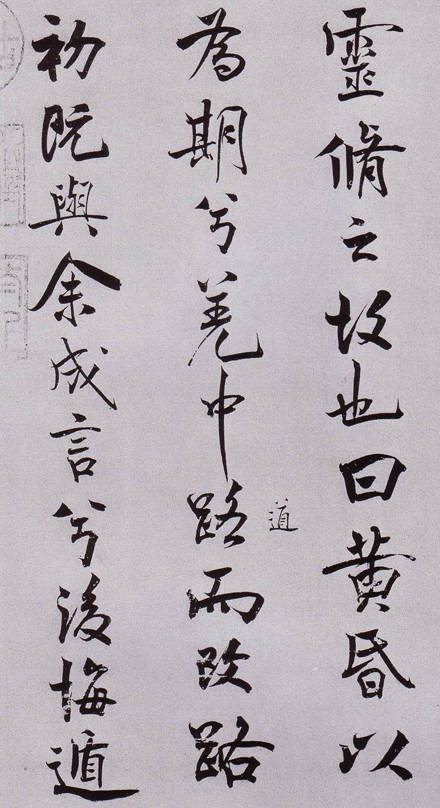 靈脩之故也曰黃昏以
為期兮羌中路而改路
道
初既與余成言兮後悔遁